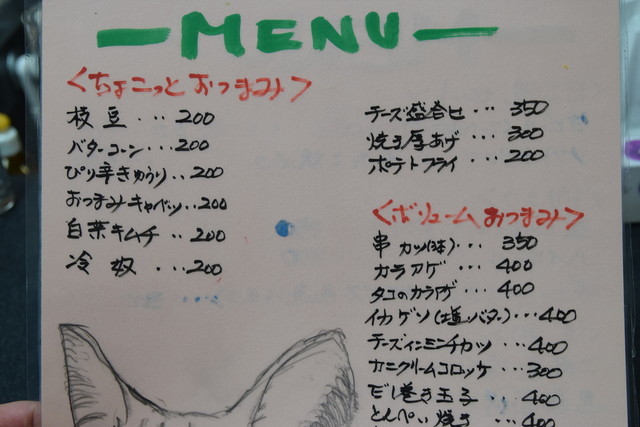 MENU
<ちょこっと おつまみ>
枝豆 ... 200
バターコーン ... 200
ぴり辛きゅうり .. 200
おつまみキャベツ .. 200
白菜キムチ .. 200
冷奴 ... 200
チーズ盛合せ ... 350
焼き厚あげ ... 300
ポテトフライ ... 200
<ボリュームおつまみ>
串カツ(3本) ... 350
カラアゲ ... 400
タコのカラアゲ ... 400
イカゲソ(塩・バター) ... 400
チーズインミンチカツ ... 400
カニクリームコロッケ ... 300
だし巻き玉子 ... 400
とんぺい焼き ... 400